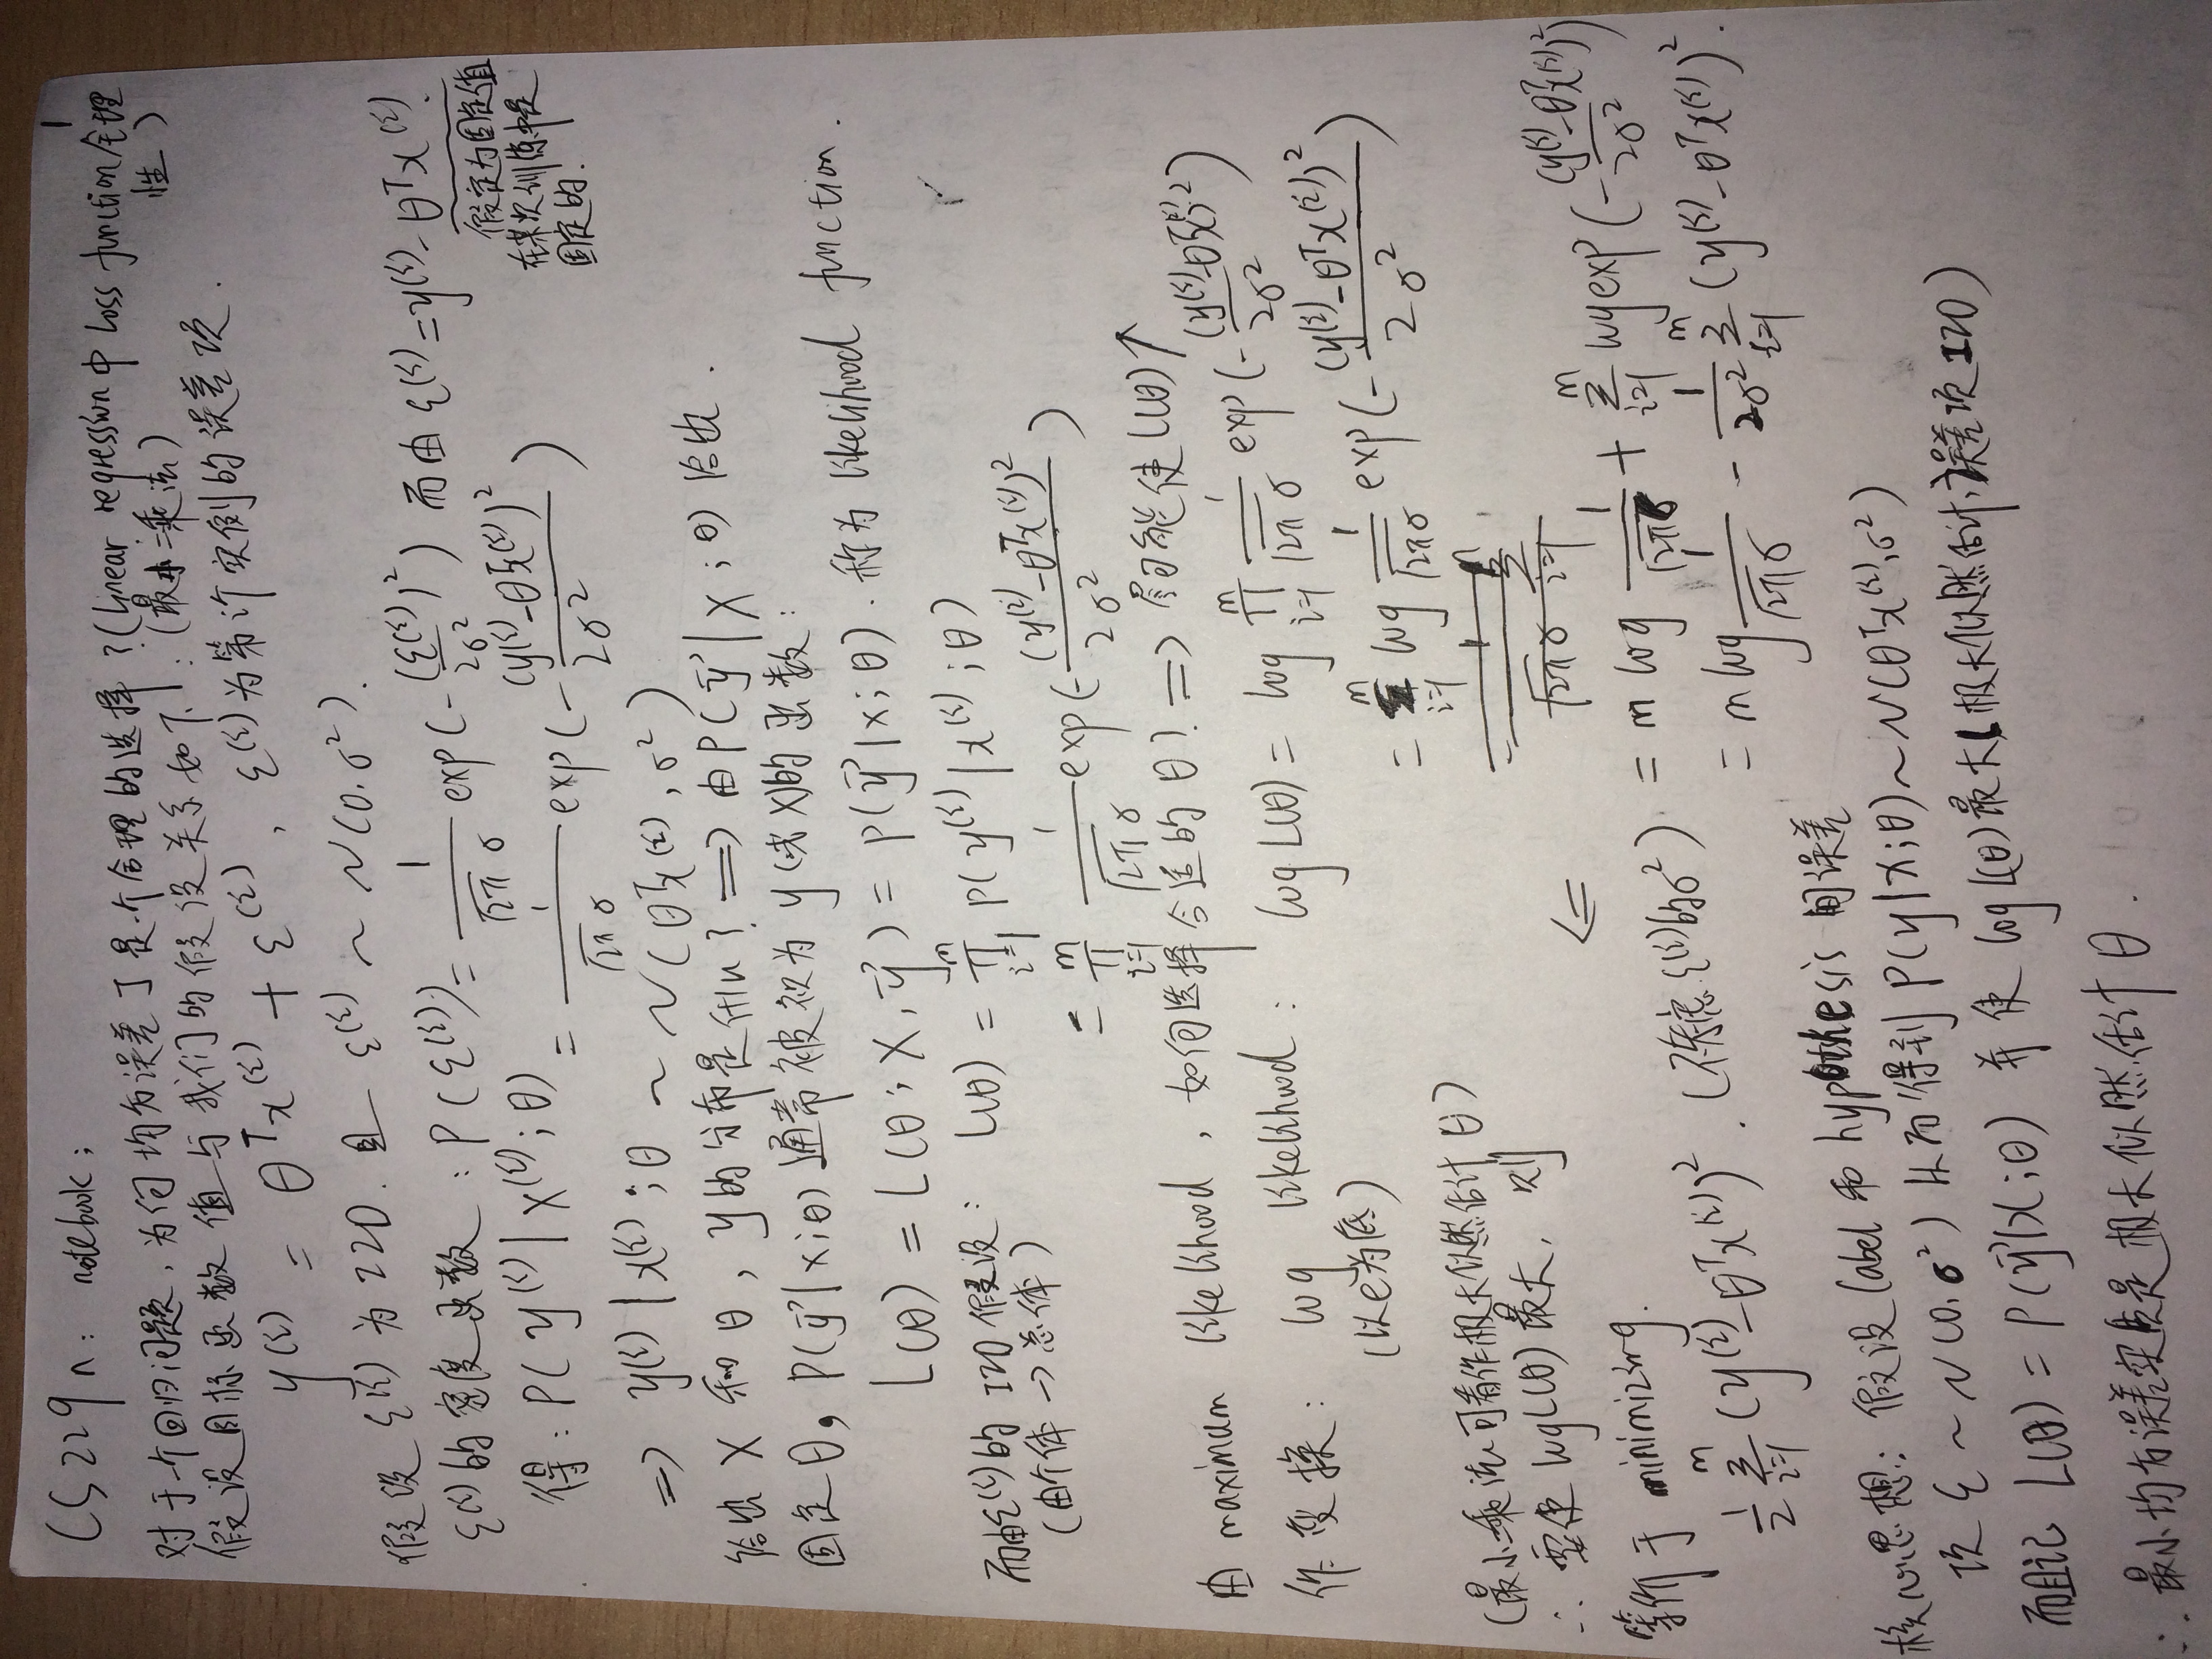 1
CS229n: notebook;
对于一个回归问题,为何均方误差J是一个合理的选择?(linear regression中 Loss function合理性)
(最小二乘法)
假设目标函数值与我们的假设关系如下:
y^(i) = θ^T x^(i) + ε^(i), ε^(i)为第i个实例的误差项.
假设 ε^(i) 为 IID. 且 ε^(i) ~ N(0, σ²).
ε^(i)的密度函数: P(ε^(i)) = 1/(√2π σ) exp(-(ε^(i))²/2σ²) 而由 ε^(i) = y^(i) - θ^T x^(i).
假定为固定值
在某次训练中是
固定的!
得: P(y^(i)|x^(i);θ) = 1/(√2π σ) exp(-(y^(i)-θ^T x^(i))²/2σ²)
=> y^(i)|x^(i);θ ~ N(θ^T x^(i), σ²)
给出 X 和 θ, y的分布是什么? => 由P(y⃗|X;θ) 给出.
固定θ, P(y⃗|X;θ) 通常被视为 y(或X)的函数:
L(θ) = L(θ; X, y⃗) = P(y⃗|X;θ). 称为 likelihood function.
而由ε^(i)的 IID 假设: L(θ) = ∏_{i=1}^m P(y^(i)|x^(i);θ)
(由个体 → 总体)
= ∏_{i=1}^m 1/(√2π σ) exp(-(y^(i)-θ^T x^(i))²/2σ²)
由 maximum likelihood, 如何选择合适的 θ? => 尽可能使 L(θ)↑
作变换: log likelihood: log L(θ) = log ∏_{i=1}^m 1/(√2π σ) exp(-(y^(i)-θ^T x^(i))²/2σ²)
(以e为底)
= Σ_{i=1}^m log 1/(√2π σ) exp(-(y^(i)-θ^T x^(i))²/2σ²)
(最小二乘法可看作极大似然估计 θ)
∴ 要使 log L(θ) 最大, 则
<=
= m log 1/(√2π σ) + Σ_{i=1}^m log exp(-(y^(i)-θ^T x^(i))²/2σ²)
等价于 minimizing.
1/2 Σ_{i=1}^m (y^(i)-θ^T x^(i))². (不考虑 ε^(i)的σ²)
= m log 1/(√2π σ) - 1/2σ² Σ_{i=1}^m (y^(i)-θ^T x^(i))².
核心思想: 假设 label 和 hypothesis 间误差
项 ε ~ N(0, σ²) 从而得到 P(y|X;θ) ~ N(θ^T x^(i), σ²)
而且记 L(θ) = P(y⃗|X;θ) 并使 log L(θ) 最大(极大似然估计,误差项 IID)
∴ 最小均方误差实质是极大似然估计 θ.